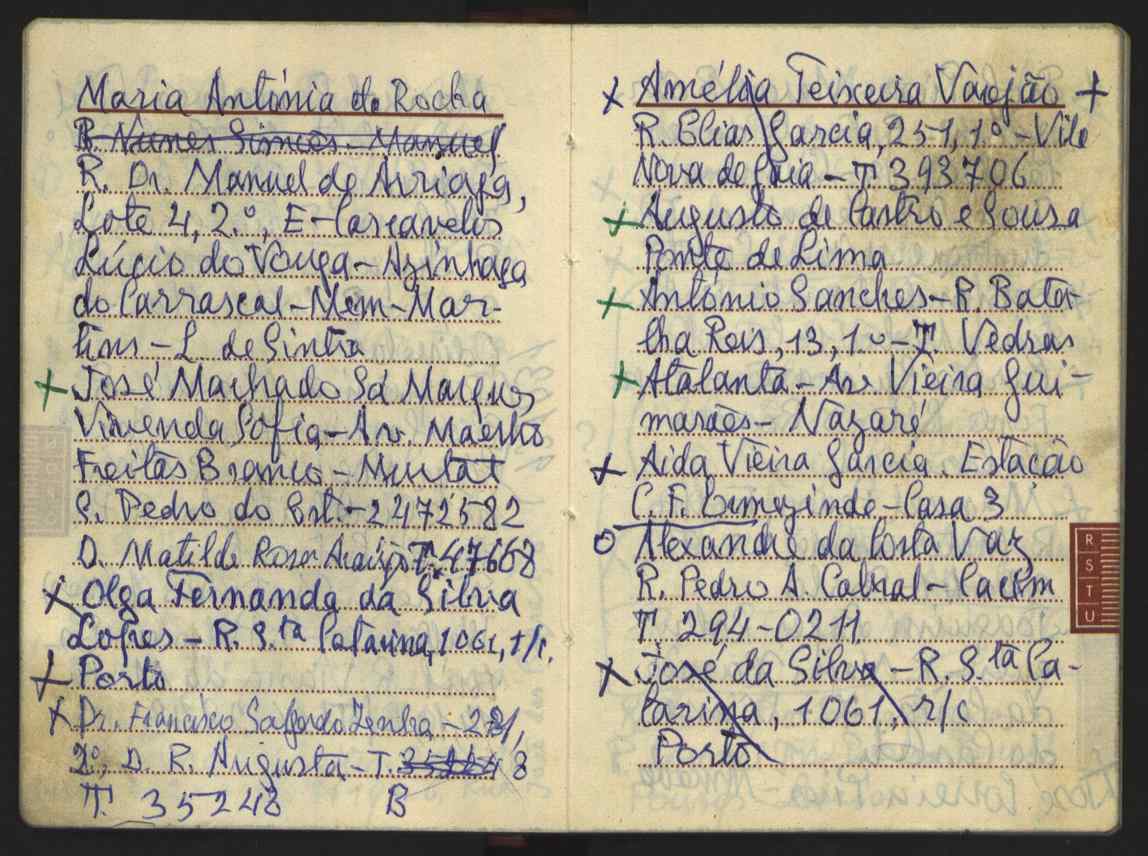 Maria Antónia da Rocha
R. Nunes Simões - Manuel
R. Dr. Manuel de Arriaga,
Lote 4, 2.º, E - Carcavelos
Lúcio do Vouga - Azinhaga
do Carrascal - Mem-Mar-
tins - L. de Sintra
+ José Machado Sá Marques
Vivenda Sofia, - Av. Maestro
Freitas Branco - Muxtat
S. Pedro do Est. - 2472582
D. Matilde Rosa Araújo T. 47668
x Olga Fernanda da Silva
Lopes - R. S.ta Catarina, 1061, r/c.
+ Porto
x Dr. Francisco Salgado Zenha -
2º, D. R. Augusta - T. 8
T. 35248 B
x Amélia Teixeira Varejão +
R. Elias Garcia, 251, 1.º - Vila
Nova de Gaia - T. 393706
+ Augusto de Castro e Sousa
Ponte de Lima
+ António Sanches - R. Bata-
lha Reis, 13, 1.º - T. Vedras
+ Atalanta - Av. Vieira Gui-
marães - Nazaré
+ Aida Vieira Garcia. Estação
C. F. Ermezinde - Casa 3
o Alexandre da Costa Vaz
R. Pedro A. Cabral - Cacém
T. 294-0211
x José da Silva - R. S.ta Ca-
tarina, 1061, r/c
Porto
R
S
T
U